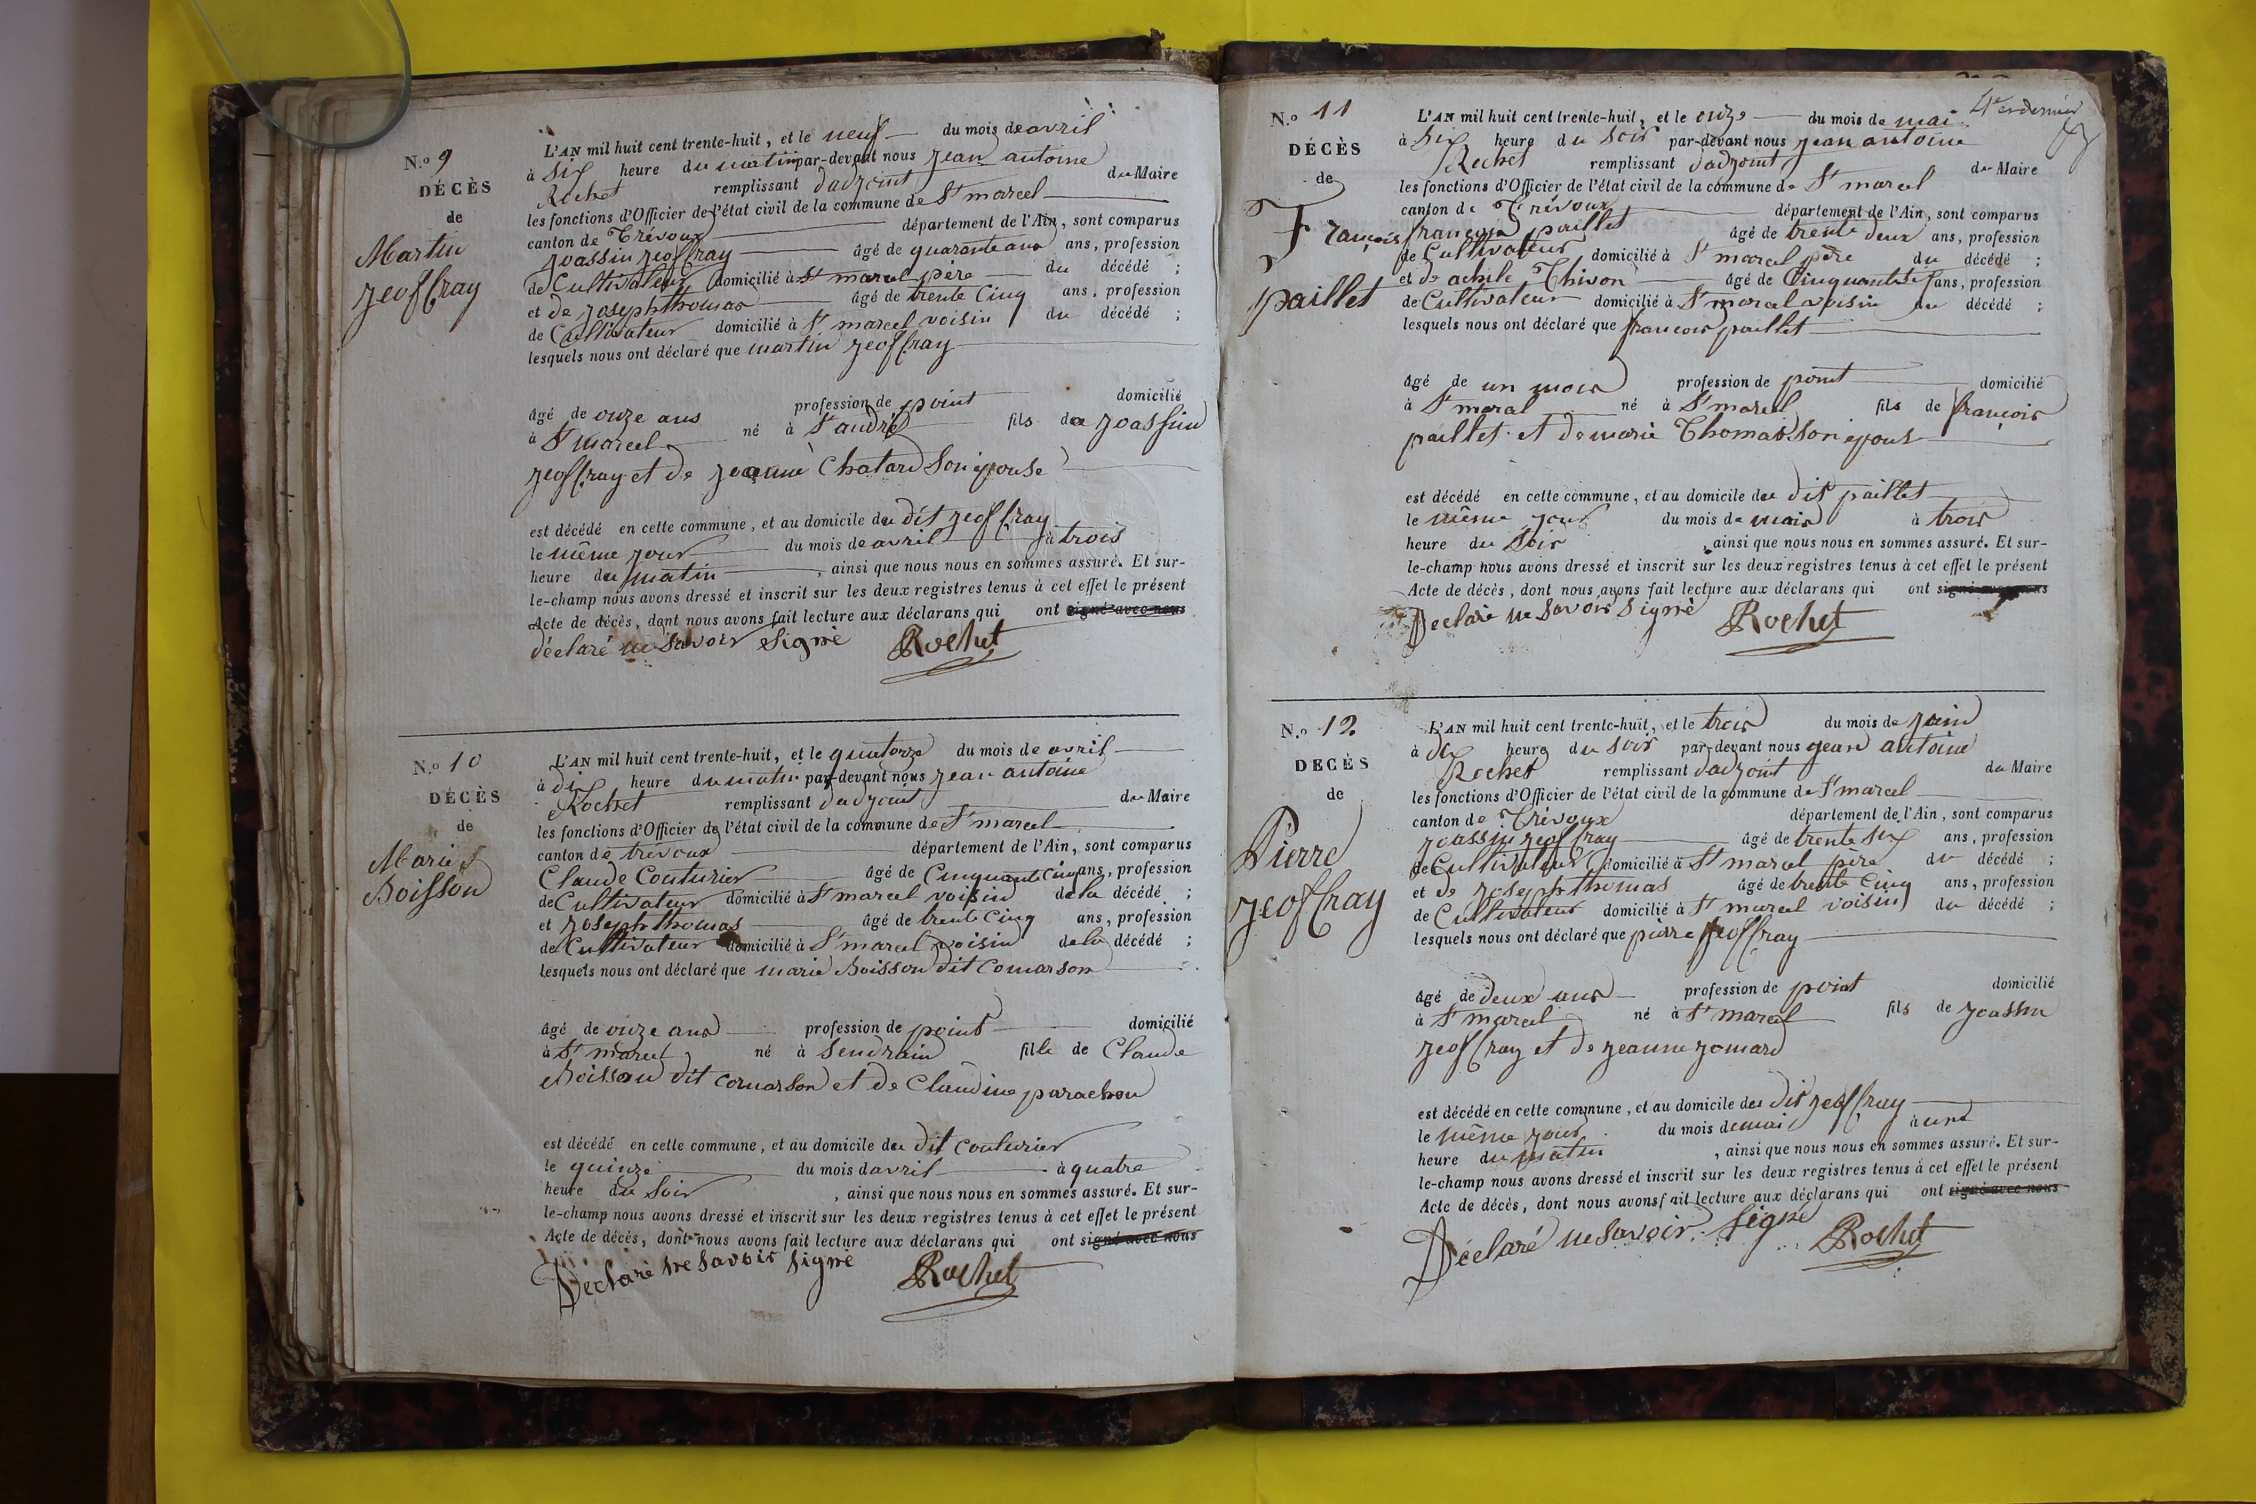 N.o 9
DÉCÈS
de
Martin
jeoffray
L'AN mil huit cent trente-huit, et le neuf du mois de avril
à six heure du matin par-devant nous jean antoine
Rochet remplissant dadjoint du Maire
les fonctions d'Officier de l'état civil de la commune de St marcel
canton de Trévoux département de l'Ain, sont comparus
joassin jeoffray âgé de quarante ans ans, profession
de Cultivateur domicilié à St marcel père du décédé ;
et de joseph thomas âgé de trente cinq ans, profession
de Cultivateur domicilié à St marcel voisin du décédé ;
lesquels nous ont déclaré que martin jeoffray
âgé de onze ans profession de point domicilié
à St marcel né à St andré fils de joassin
jeoffray et de jeanne Chatard son épouse
est décédé en cette commune, et au domicile du dit jeoffray
le même jour du mois de avril à trois
heure du matin, ainsi que nous nous en sommes assuré. Et sur-
le-champ nous avons dressé et inscrit sur les deux registres tenus à cet effet le présent
Acte de décès, dont nous avons fait lecture aux déclarans qui ont signé avec nous
déclaré ne savoir signé Rochet
N.o 10
DÉCÈS
de
Marie
Boisson
L'AN mil huit cent trente-huit, et le quatorze du mois de avril
à dix heure du matin par-devant nous jean antoine
Rochet remplissant dadjoint du Maire
les fonctions d'Officier de l'état civil de la commune de St marcel
canton de trévoux département de l'Ain, sont comparus
Claude Couturier âgé de Cinquante cinq ans, profession
de Cultivateur domicilié à St marcel voisin de la décédé ;
et joseph thomas âgé de trente cinq ans, profession
de Cultivateur domicilié à St marcel voisin de la décédé ;
lesquels nous ont déclaré que marie Boisson dit comarson
âgé de onze ans profession de point domicilié
à St marcel né à Sendrain fille de Claude
Boisson dit comarson et de Claudine parachon
est décédé en cette commune, et au domicile du dit couturier
le quinze du mois d avril à quatre
heure du soir, ainsi que nous nous en sommes assuré. Et sur-
le-champ nous avons dressé et inscrit sur les deux registres tenus à cet effet le présent
Acte de décès, dont nous avons fait lecture aux déclarans qui ont signé avec nous
Déclaré ne savoir signé Rochet
4e et dernier
N.o 11
DÉCÈS
de
François
paillet
L'AN mil huit cent trente-huit, et le onze du mois de mai
à six heure du soir par-devant nous jean antoine
Rochet remplissant dadjoint du Maire
les fonctions d'Officier de l'état civil de la commune de St marcel
canton de Trévoux département de l'Ain, sont comparus
françois paillet âgé de trente deux ans, profession
de Cultivateur domicilié à St marcel père du décédé ;
et de achile Thivon âgé de Cinquante ans, profession
de Cultivateur domicilié à St marcel voisin du décédé ;
lesquels nous ont déclaré que françois paillet
âgé de un mois profession de point domicilié
à St marcel né à St marcel fils de françois
paillet et de marie Thomas son épous
est décédé en cette commune, et au domicile du dit paillet
le même jour du mois de mais à trois
heure du soir, ainsi que nous nous en sommes assuré. Et sur-
le-champ nous avons dressé et inscrit sur les deux registres tenus à cet effet le présent
Acte de décès, dont nous avons fait lecture aux déclarans qui ont signé avec nous
Déclaré ne savoir signé Rochet
N.o 12
DÉCÈS
de
Pierre
jeoffray
L'AN mil huit cent trente-huit, et le trois du mois de juin
à dix heure du soir par-devant nous jean antoine
Rochet remplissant dadjoint du Maire
les fonctions d'Officier de l'état civil de la commune de St marcel
canton de Trévoux département de l'Ain, sont comparus
joassin jeoffray âgé de trente six ans, profession
de Cultivateur domicilié à St marcel père du décédé ;
et de joseph thomas âgé de trente cinq ans, profession
de Cultivateur domicilié à St marcel voisin du décédé ;
lesquels nous ont déclaré que pierre jeoffray
âgé de deux ans profession de point domicilié
à St marcel né à St marcel fils de joassin
jeoffray et de jeanne jomard
est décédé en cette commune, et au domicile du dit jeoffray
le même jour du mois de mai à une
heure du matin, ainsi que nous nous en sommes assuré. Et sur-
le-champ nous avons dressé et inscrit sur les deux registres tenus à cet effet le présent
Acte de décès, dont nous avons fait lecture aux déclarans qui ont signé avec nous
Déclaré ne savoir signé Rochet